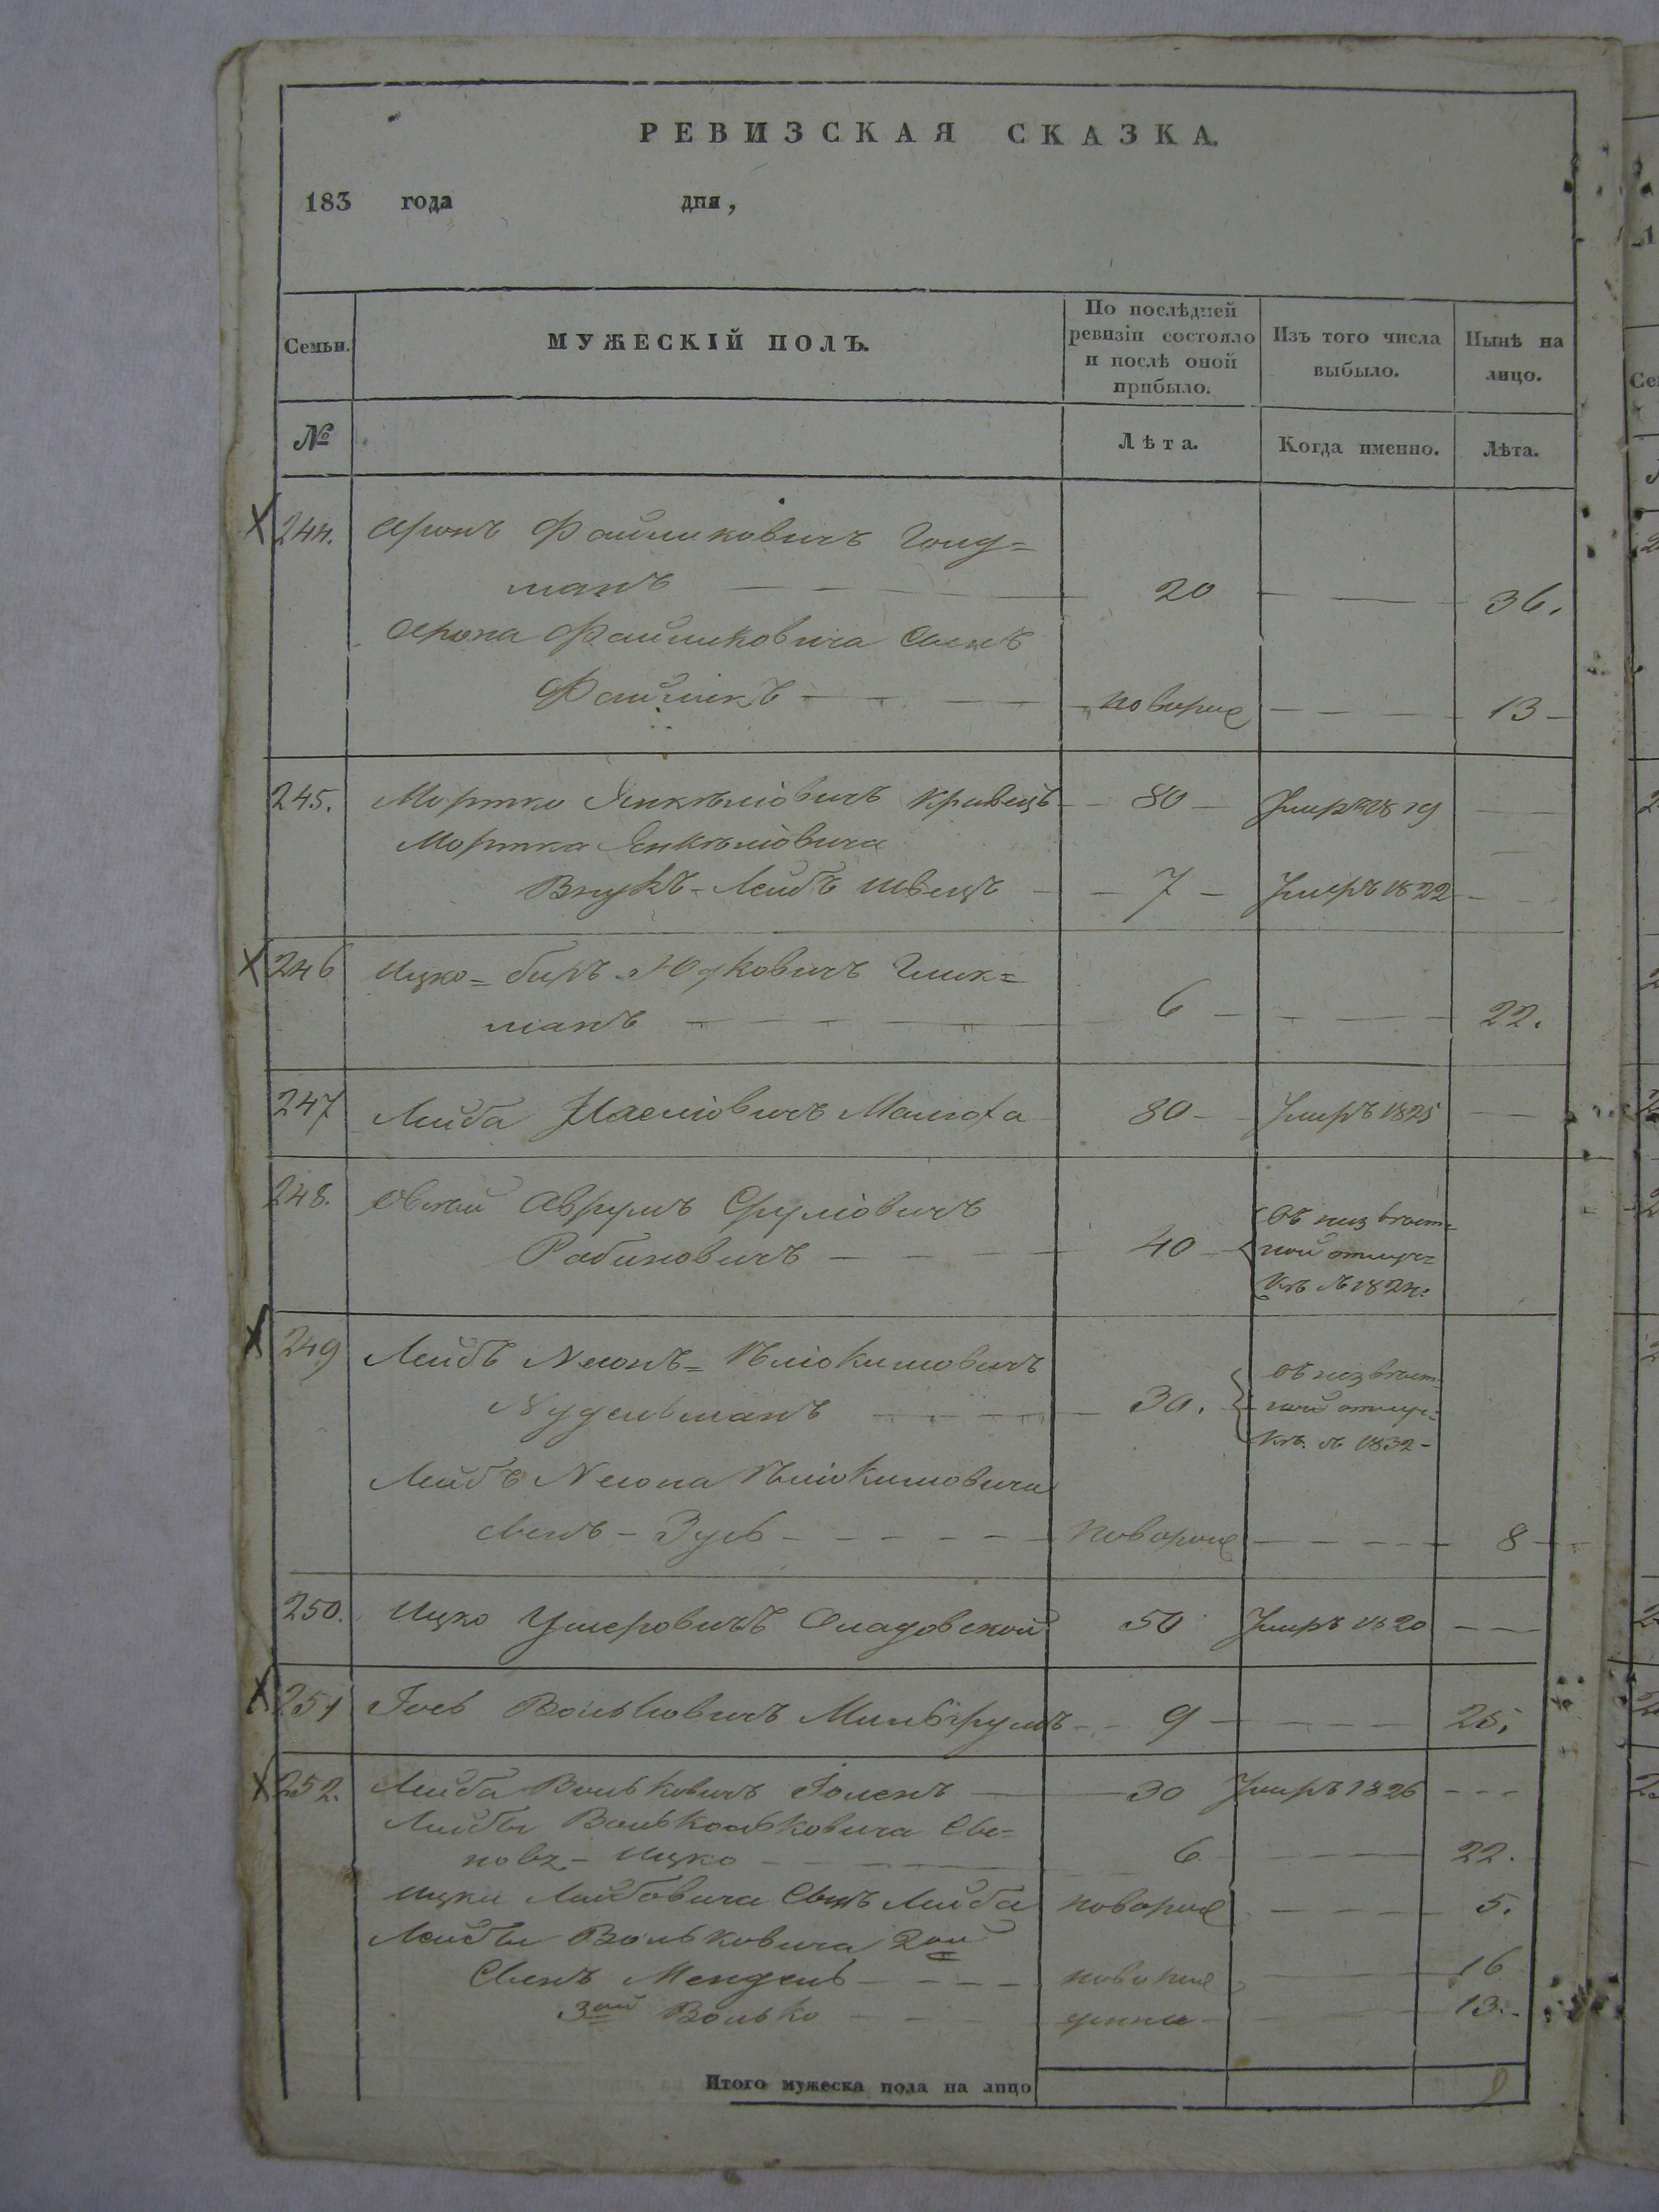 РЕВИЗСКАЯ СКАЗКА.
183 года дня,
Семьи. МУЖЕСКІЙ ПОЛЪ. По послѣдней ревизіи состояло и послѣ оной прибыло. Изъ того числа выбыло. Нынѣ на лицо.
№ Лѣта. Когда именно. Лѣта.
244. Аронъ Файшиковичъ Голд=
манъ 20 36.
Арона Файшиковича Сынъ
Файшикъ новорож 13
245. Мортко Янкѣліовичъ Кравецъ 80 Умеръ 1819
Мортка Янкѣліовича
Внукъ Лейбъ Швецъ 7 Умеръ 1822
246 Ицко= беръ Юдковичъ Глик=
манъ 6 22.
247 Лейба 80 Умеръ 1825
248. Овшій Аврумъ Сруліовичъ
Рабиновичъ 40 въ неизвѣст=
ной отлуч=
кѣ съ 1824.
249 Лейбъ
Нудельманъ 30. въ неизвѣст=
ной отлуч=
кѣ съ 1832
Лейбъ
Сынъ - Зусь новорож 8
250. Ицко Ушеровичъ Сладовской 50 Умеръ 1820
251 Іось Вольковичъ Мильгрумъ 9 25.
252. Лейба Вольковичъ Голенъ 30 Умеръ 1826
Лейбы Вольковича Сы=
новъ - Ицко 6 22.
Ицки Лейбовича Сынъ Лейба новорож 5.
Лейбы Вольковича 2ой
Сынъ Мендель новорож 16
3ій Волько 13.
Итого мужеска пола на лицо